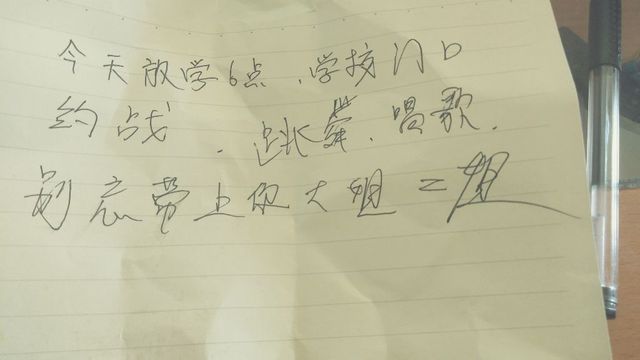 今天放学6点.学校门口
约战.跳舞.唱歌.
别忘带上你大姐二姐